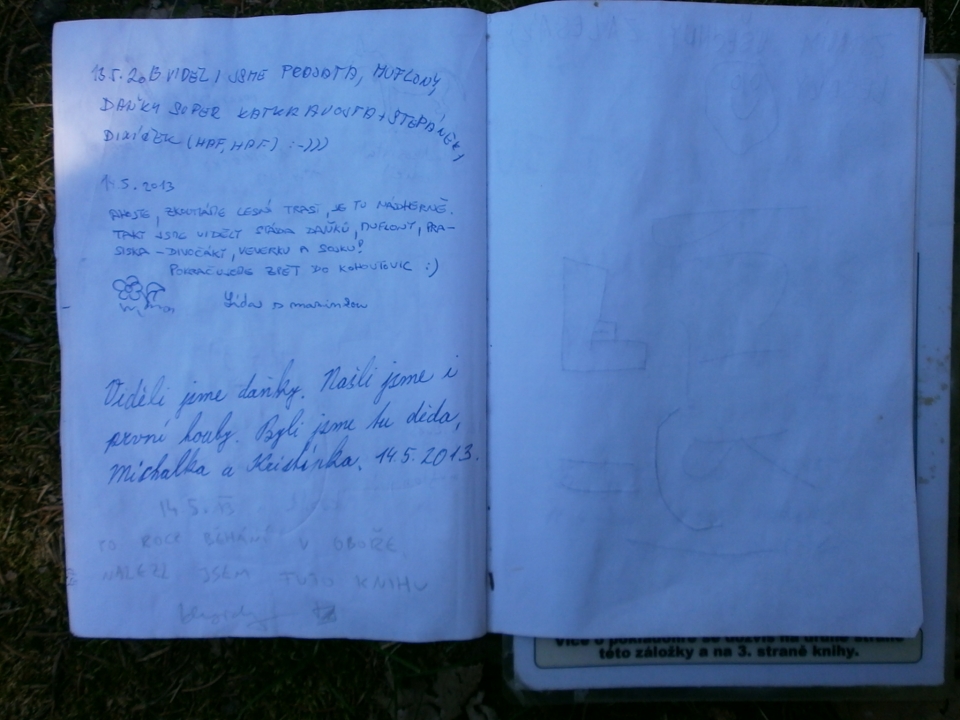 13.5.2013 VIDĚLI JSME PRASATA, MUFLONY,
DAŇKY SUPER KATKA A JOSTA + ŠTĚPÁNEK,
(HAF, HAF) :-)))
14.5.2013
AHOJTE, ZKOUMÁME LESNÍ TRASY, JE TU NÁDHERNĚ.
TAKY JSME VIDĚLY STÁDA DAŇKŮ, MUFLONY, PRA-
SISKA - DIVOČÁKY, VEVERKU A SOJKU!
POKRAČUJEME ZPĚT DO KOHOUTOVIC :)
Lída s
Viděli jsme daňky. Našli jsme i
první houby. Byli jsme tu děda,
Michalka a Kristínka. 14.5.2013.
14.5.13
TO ROCE BĚHÁNÍ V OBOŘE
NALEZL JSEM TUTO KNIHU
Více o pokladohře se dozvíš na druhé straně
této záložky a na 3. straně knihy.